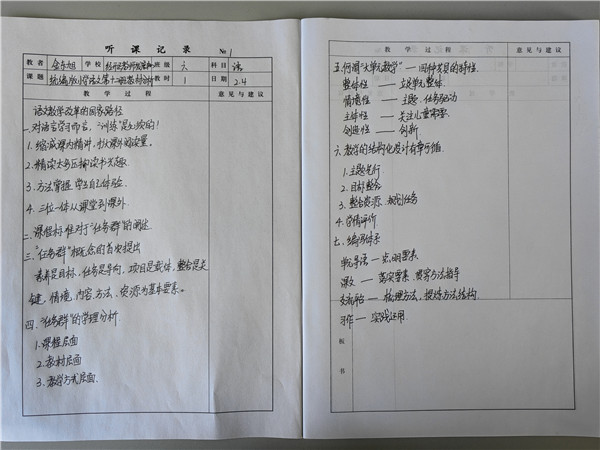 听课记录 № 1
教者 金东旭 学校 班级 六 科目 语
课题 统编版小学语文第十一册教材分析 教时 1 日期 2.4
教学过程 意见与建议
语文教学改革的国家路径
一.对语言学习而言，"训练"是必须的！
1.缩减课内精讲，扩大课外阅读量。
2.精读太多压抑读书兴趣.
3.方法掌握 学生自己体验.
4.三位一体从课堂到课外.
二.课程标准对于"任务群"的阐述.
三."任务群"概念的首次提出
素养是目标，任务是导向，项目是载体，整合是关
键，情境、内容、方法、资源为基本要素。
四."任务群"的学理分析.
1.课程层面
2.教材层面
3.教学方式层面.
教学过程 意见与建议
五.何谓"大单元教学"——四种发展的特性.
整体性——立足单元整体.
情境性——主题、任务驱动
主体性——关注儿童需要.
创造性——创新
六.教学的结构化设计有章可循.
1.主题先行
2.目标整合
3.整合资源、规划任务
4.学情评价
七.编写体系
单元导语—点明要素.
课文—落实要素、贯穿方法指导
交流平台—梳理方法、提炼方法结构.
习作—实践运用.
板书